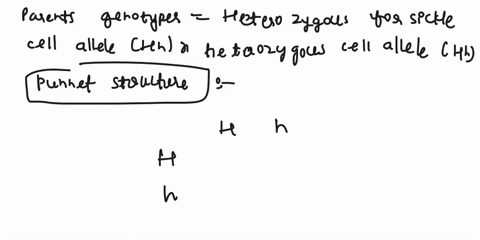 Parents genotypes = Heterozygous for sickle
cell allele (Hh) x hetrozygous cell allele (Hh)
Punnet structure :-
H h
H
h